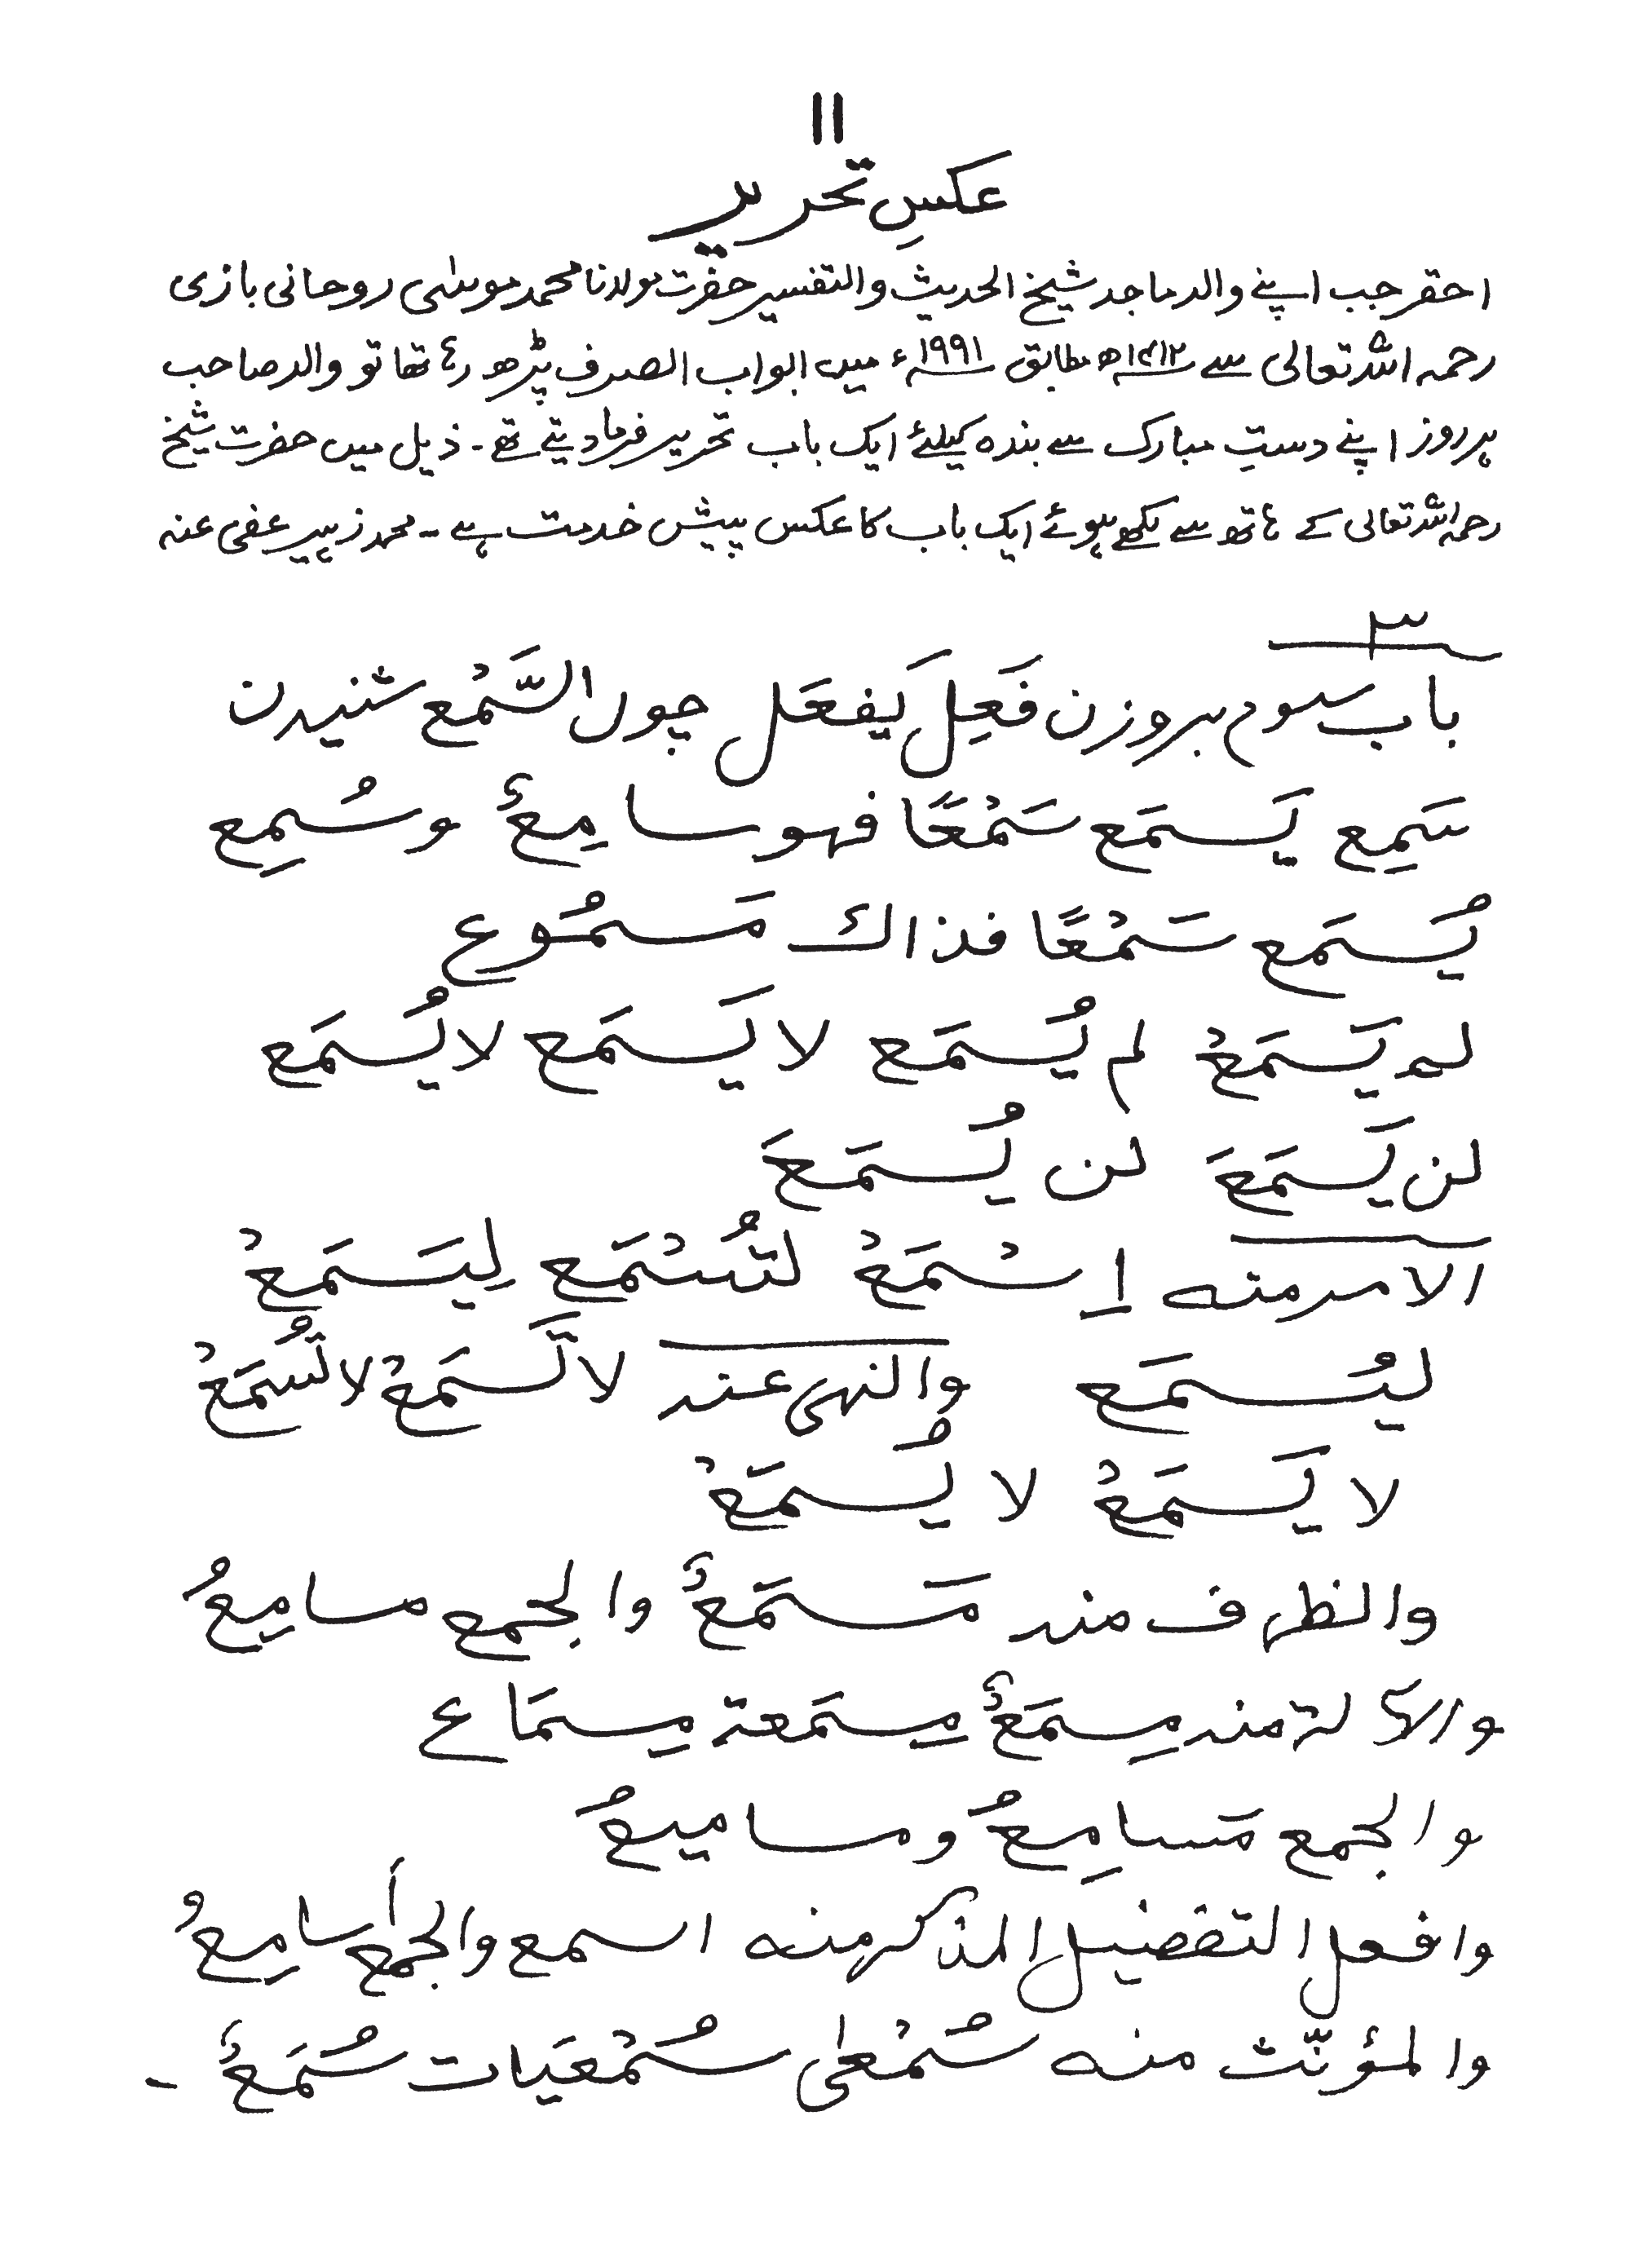 ۱۱
عکسِ تحریر
احقر جب اپنے والد ماجد شیخ الحدیث والتفسیر حضرت مولانا محمد موسیٰ روحانی بازی
رحمہ اللہ تعالی سے ۱۴۱۲ھ مطابق ۱۹۹۱ء میں ابواب الصرف پڑھ رہا تھا تو والد صاحب
ہر روز اپنے دستِ مبارک سے بندہ کیلئے ایک باب تحریر فرما دیتے تھے۔ ذیل میں حضرت شیخ
رحمہ اللہ تعالی کے ہاتھ سے لکھے ہوئے ایک باب کا عکس پیش خدمت ہے ۔ محمد زہیر عفی عنہ
۳
باب سوم بروزن فَعِل یَفعَل چوں السَّمْع شنیدن
سَمِع یَسمَع سَمْعًا فهو سامِعٌ و سُمِع
یُسمَع سَمْعًا فذاك مَسمُوع
لم یَسمَعْ لم یُسمَع لا یَسمَع لا یُسمَع
لن یَسمَعَ لن یُسمَعَ
الامر منه اِسْمَعْ لتُسْمَع لِیَسمَعْ
لیُسمَع والنهی عنه لا تَسمَعْ لا تُسمَعْ
لا یَسمَعْ لا یُسمَعْ
والظرف منه مَسمَعٌ والجمع مسامِعُ
والآلة منه مِسمَعٌ مِسمَعة مِسمَاع
والجمع مَسامِعُ ومسامیعُ
وافعل التفضیل المذکر منه اسمع والجمع أسامِعُ
والمؤنّث منه سُمْعٰی سُمْعَیات سُمَعٌ ۔